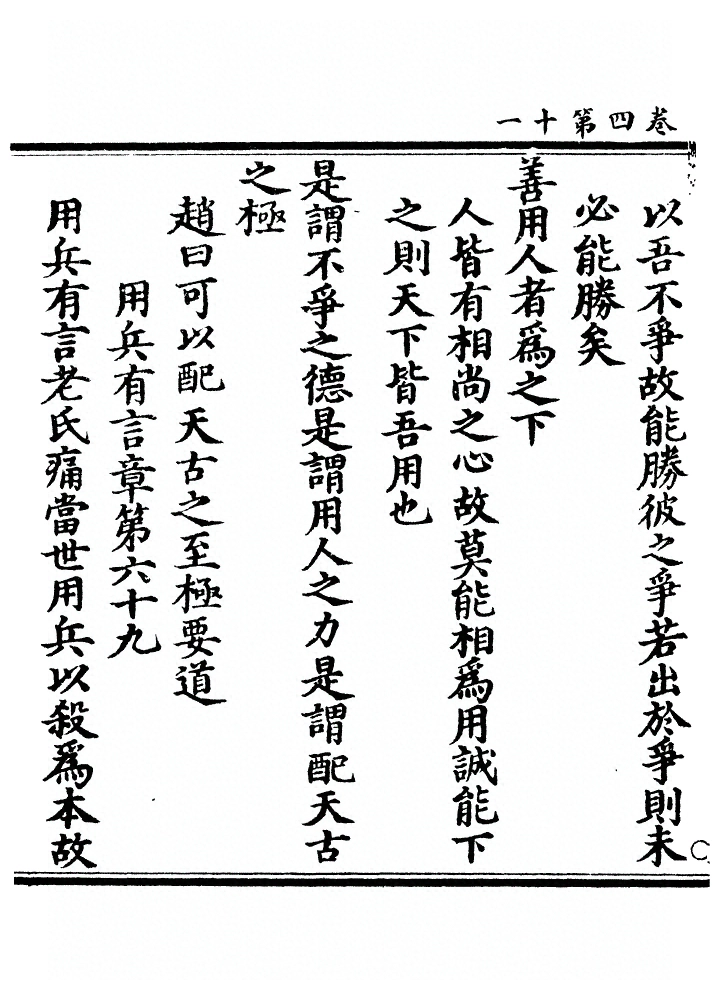 卷四第十一
以吾不爭故能勝彼之爭若出於爭則未
必能勝矣
善用人者爲之下
人皆有相尚之心故莫能相爲用誠能下
之則天下皆吾用也
是謂不爭之德是謂用人之力是謂配天古
之極
趙曰可以配天古之至極要道
用兵有言章第六十九
用兵有言老氏痛當世用兵以殺爲本故